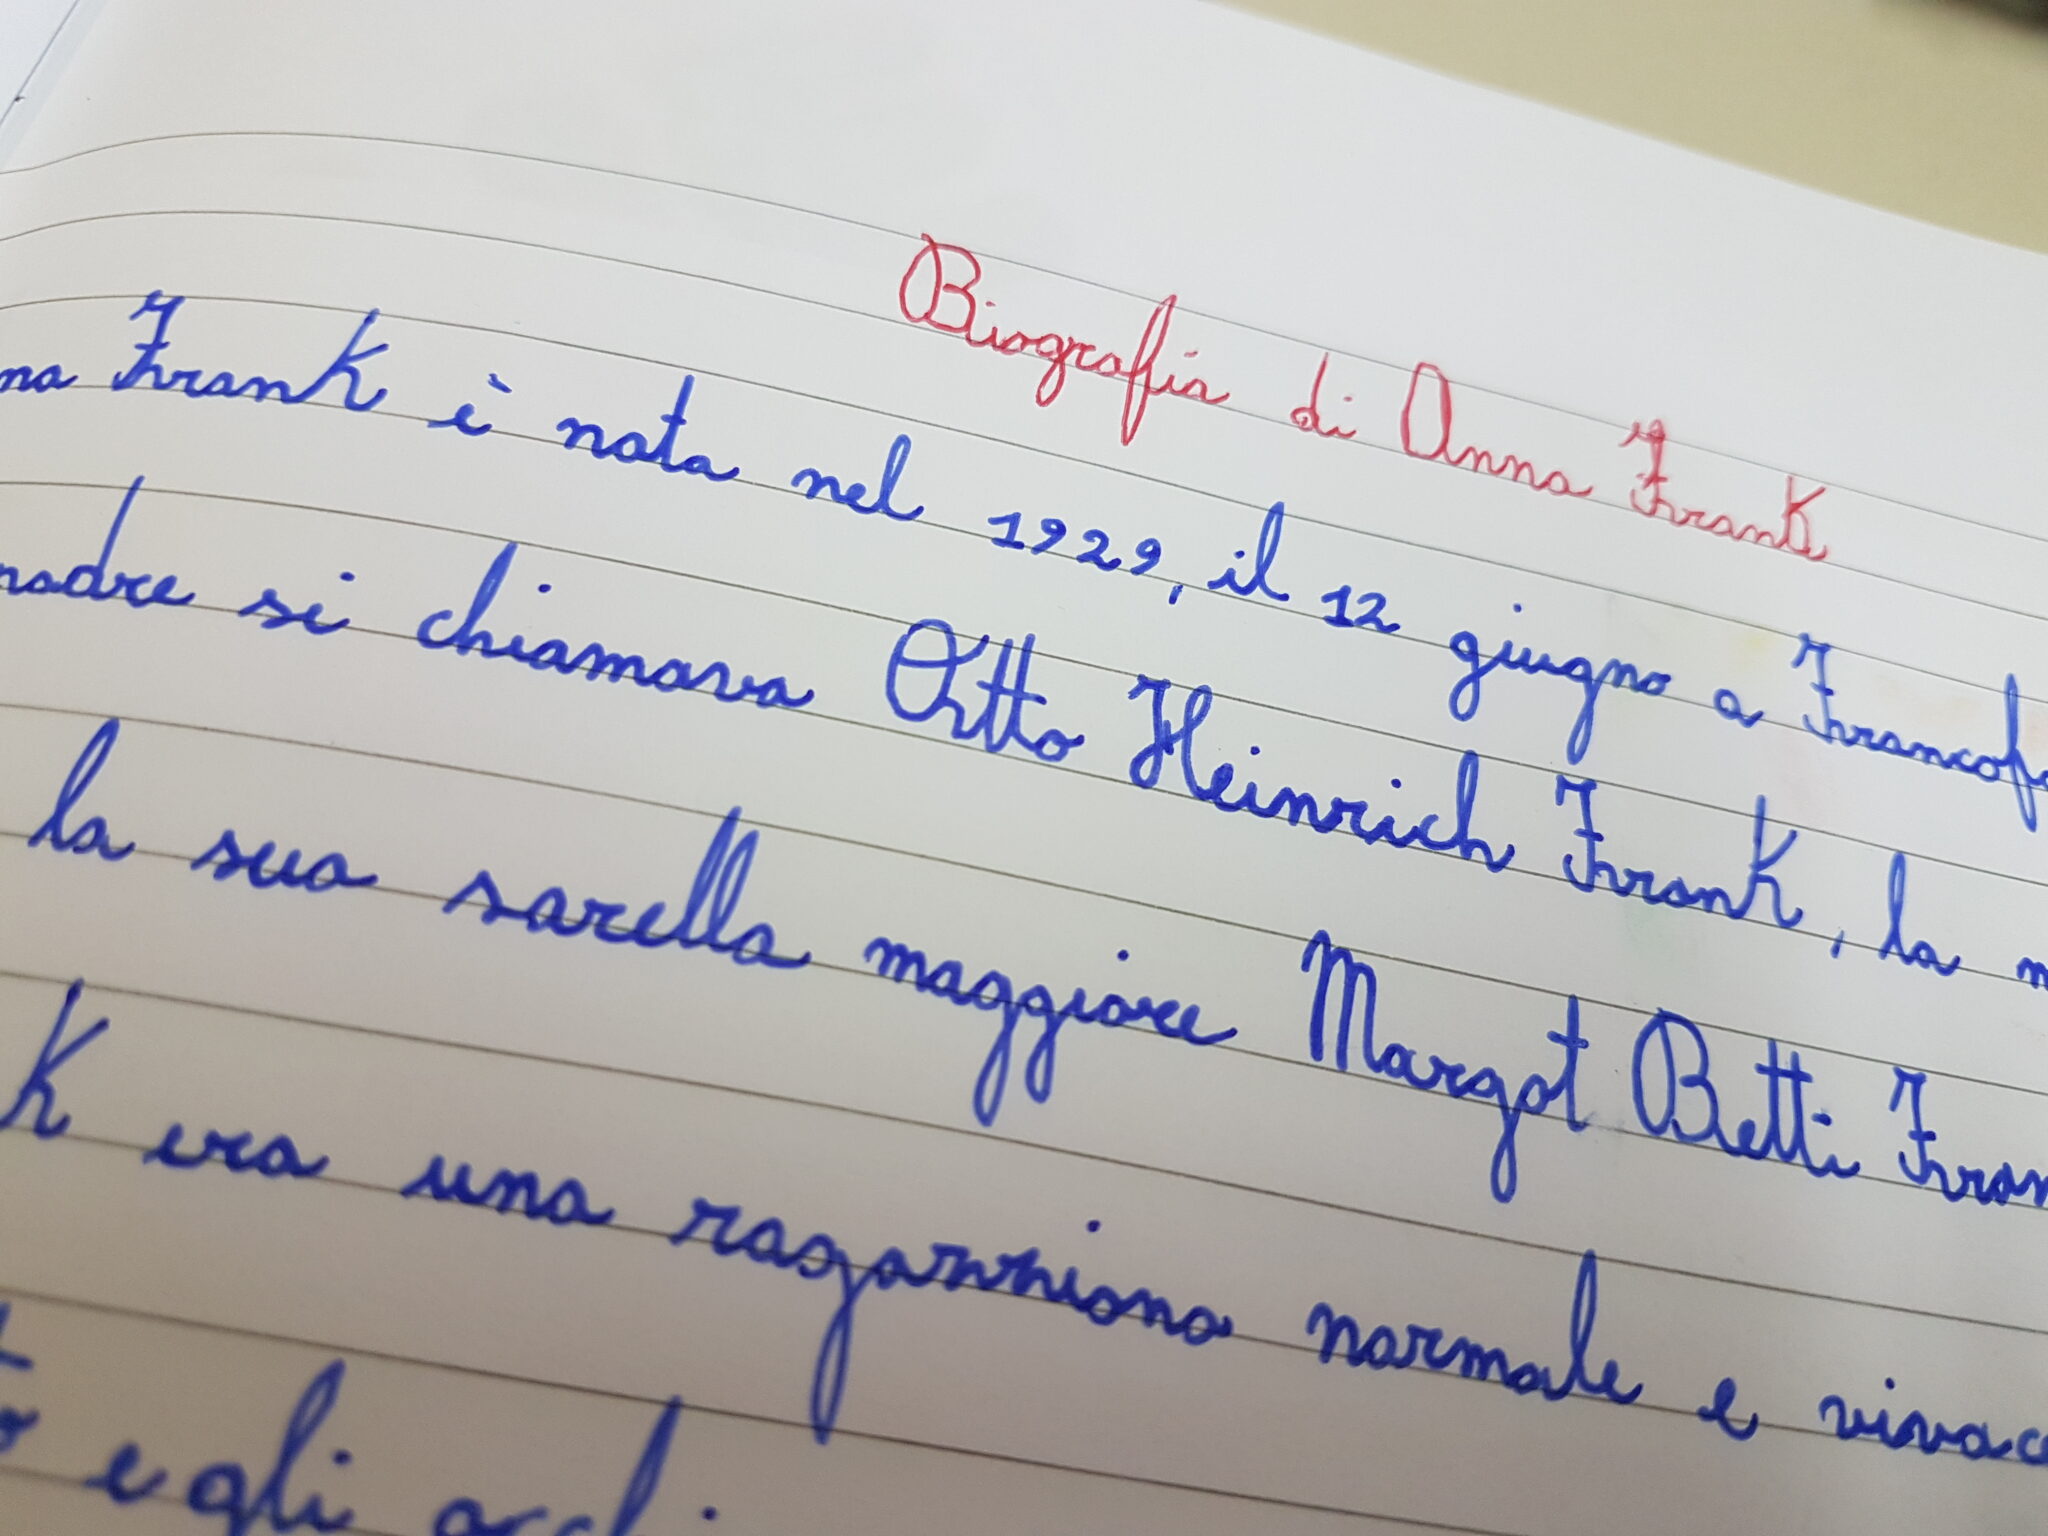 Biografia di Anna Frank
Frank è nata nel 1929, il 12 giugno a
si chiamava Otto Heinrich Frank, la
la sua sorella maggiore Margot Betti
era una ragazzina normale e
e gli